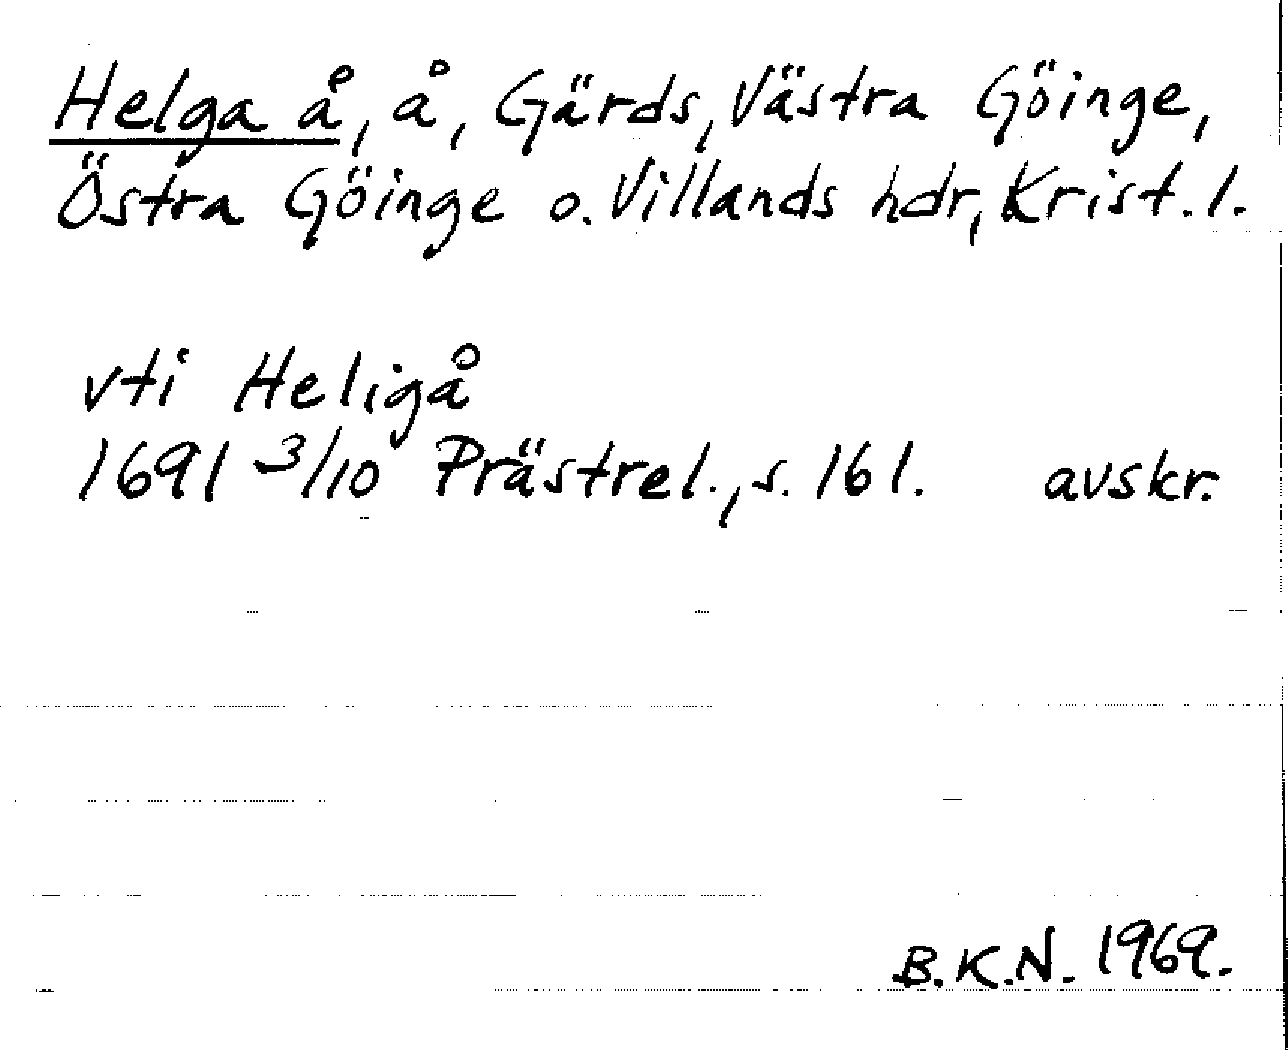 Helga å, å, Gärds, Västra Göinge,
Östra Göinge o. Villands hdr, Krist. l.
vti Heligå
1691 3/10 Prästrel., s. 161. avskr.
B.K.N. 1969.